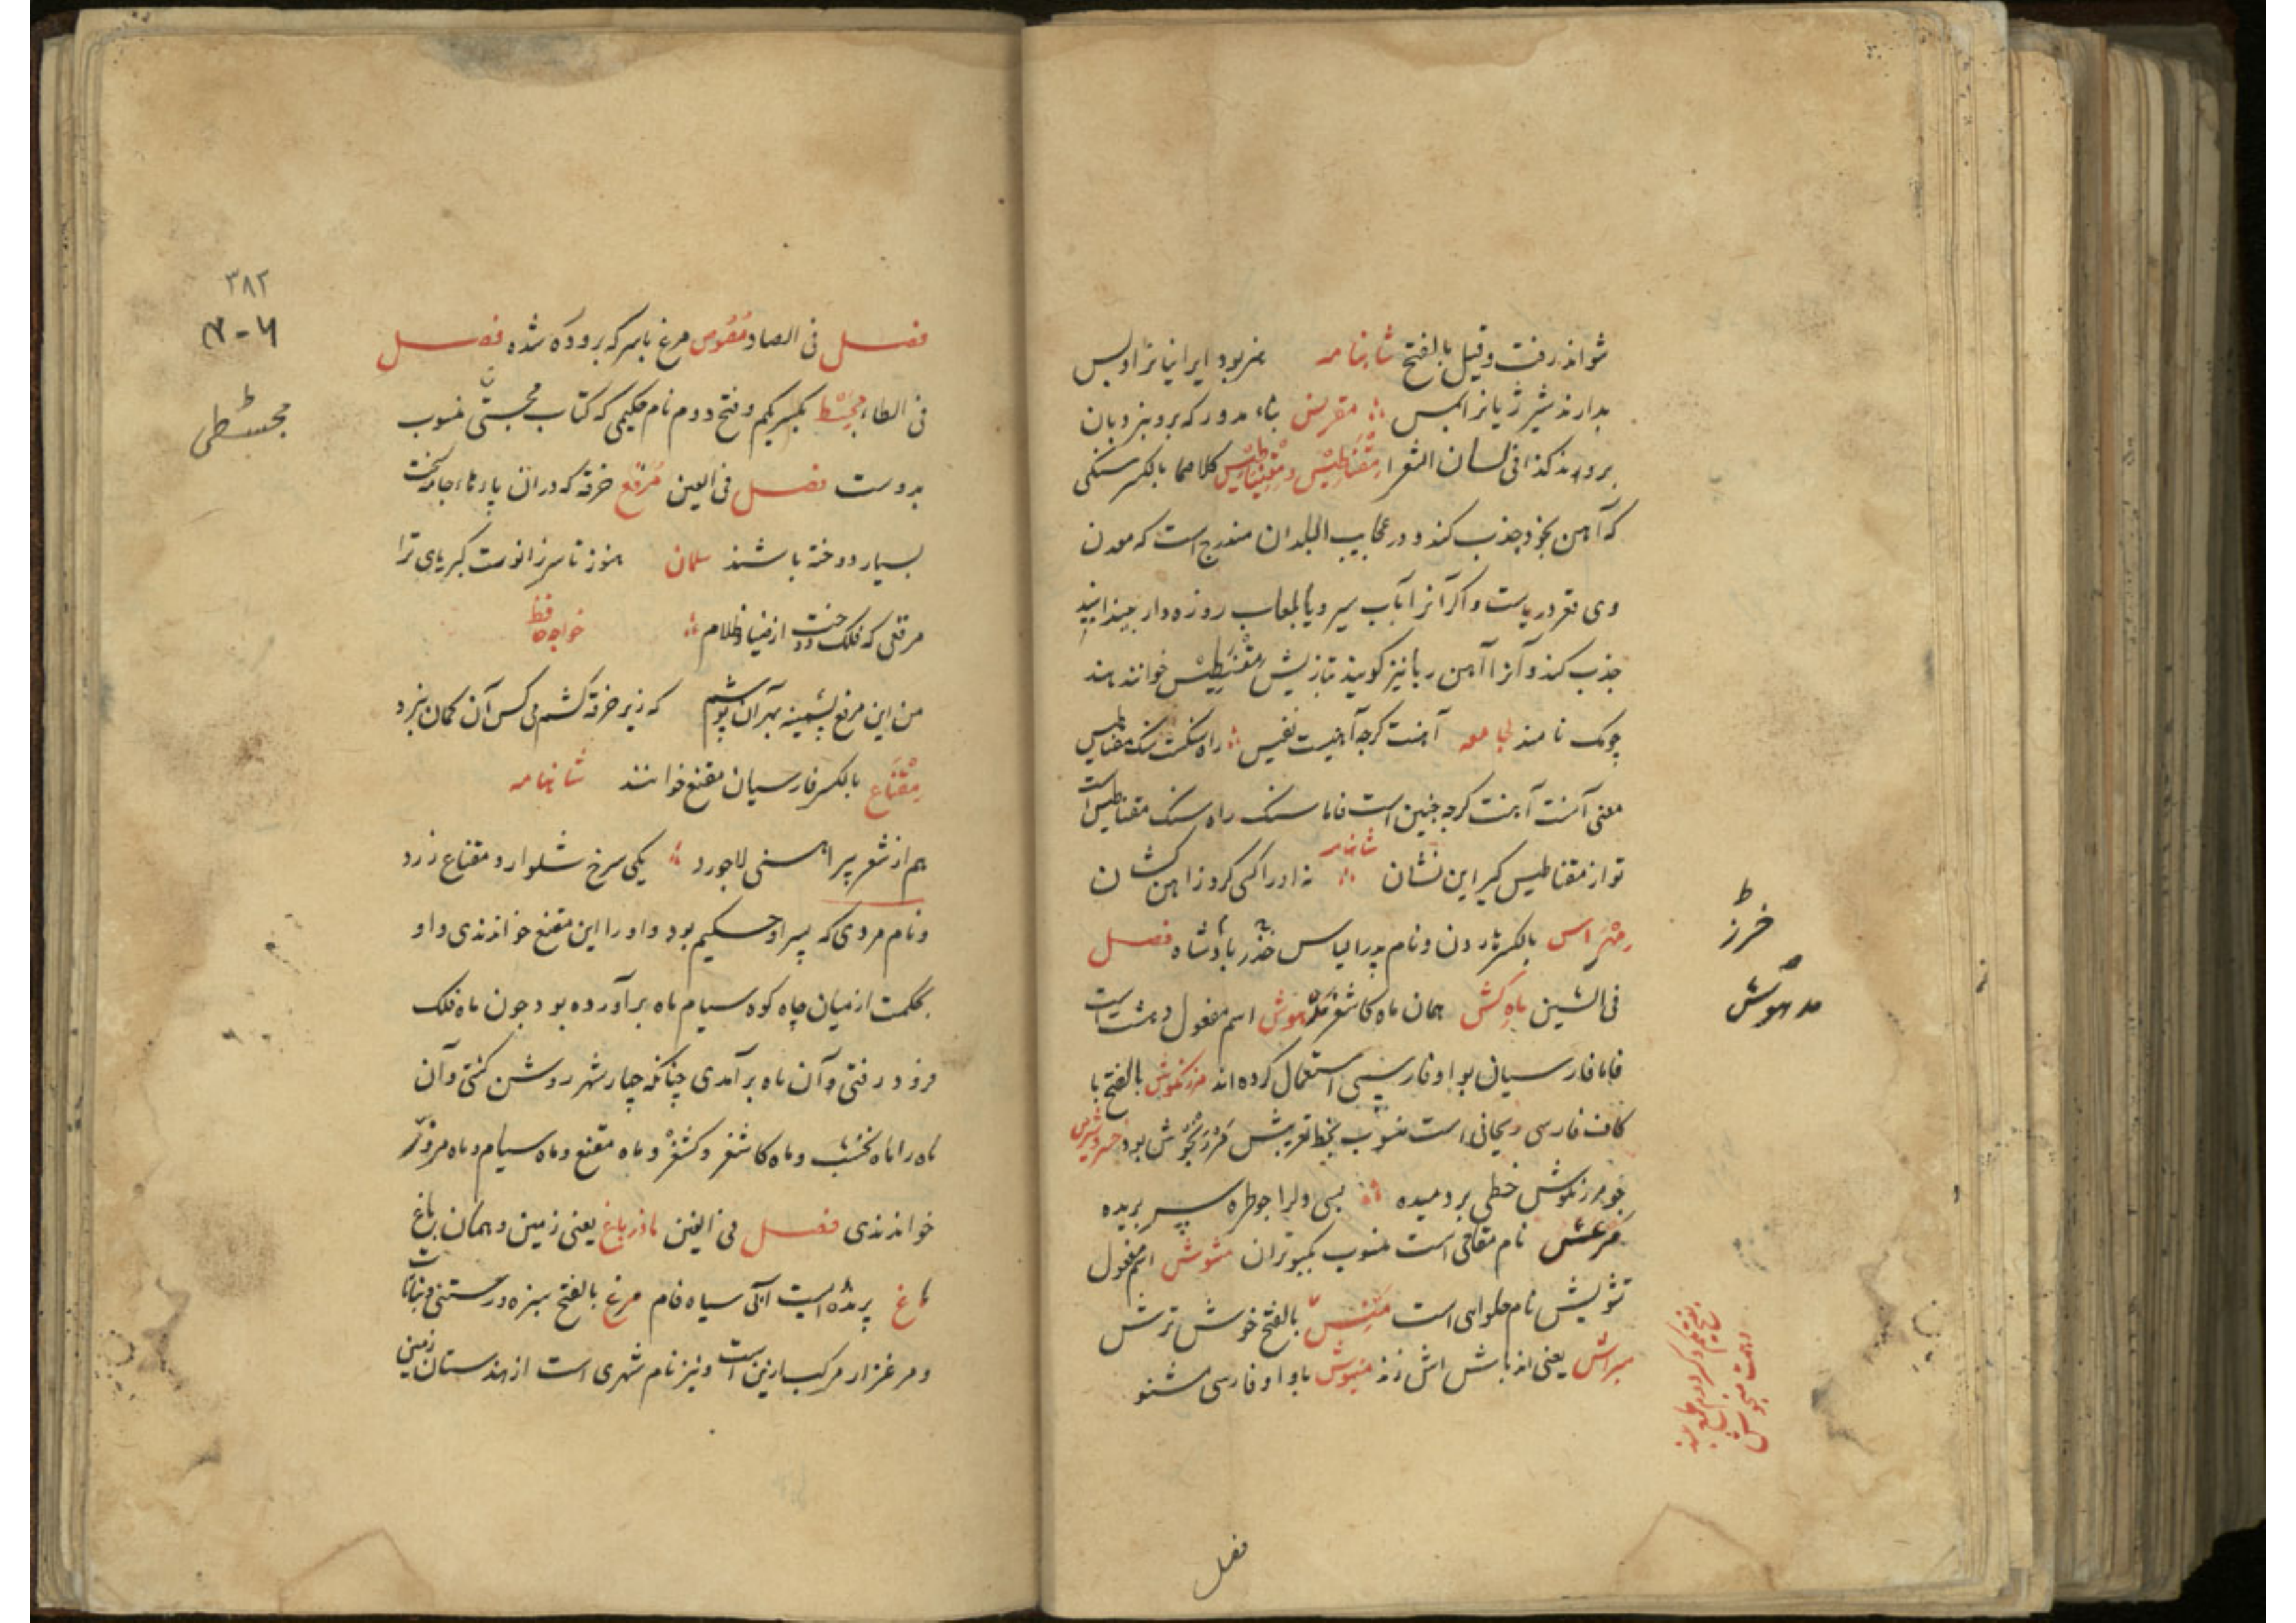 شواند رفت وقیل بالفتح شاهنامه هنر بود ایرانیانرا و بس
بدارند شیر ژیانرا بکس مقرنس بناء مدور که برو نردبان
بروند کذا فی لسان الشعرا مقناطیس و مغنیاطیس کلاهما بالکسر سنکی
که آهن بخود جذب کند و در عجایب البلدان مندرج است که معدن
وی قعر دریاست و اکر آنرا بآب سیر و یا بلعاب روزه دار بیندایند
جذب کند و آنرا آهن ربا نیز کویند بتازیش مقنطیس خوانند هند
چونک نامند لجامعه آهنت کرچه آهنیست نفیس راه سنکست سنک مقناطیس
معنی آنست آهنت کرچه چنین است فاما سنک راه سنک مقناطیس است
تو از مقناطیس کیر این نشان شاهنامه نه او را کسی کرو ز آهن کشان
مهراس بالکسر هاون و نام پدر الیاس خزر پادشاه فصل
فی الشین ماه کش همان ماه کاشغر مدهوش اسم مفعول دهشت است
فاما فارسیان بواو فارسی استعمال کرده اند مرزنکوش بالفتح با
کاف فارسی ریحانی است منسوب بخط تعریبش مرزنجوش بود خسرو شیرین
چو مرزنکوش خطی بردمیده بسی دلرا چو طره سر بریده
مرعش نام مقامی است منسوب بکبوتران مشوش اسم مفعول
تشویش نام حلوای است منش بالفتح خوش ترش
مبراش یعنی اند باش اش زند منیوش باواو فارسی مشنو
خرز
مدهوش
فصل
۳۸۲
فصل فی الصاد مقوص مرغ باسر که برو وکه شده فصل
فی الطاء مجسط بکسر یکم و فتح دوم نام حکیمی که کتاب مجستی منسوب
بدوست فصل فی العین مرقع خرقه که دران پارهاء جامه سخت
بسیار دوخته باشند سلمان هنوز تا سر زانوست کبریای ترا
مرقعی که فلک دوخت از ضیا و ظلام خواجه حافظ
من این مرقع پشمینه بهر آن پوشم که زیر خرقه کشم می کس آن کمان نبرد
مقناع بالکسر فارسیان مقنع خوانند شاهنامه
هم از شعر پیراهنی لاجورد یکی سرخ شلوار و مقناع زرد
و نام مردی که پسر او حکیم بود و اورا ابن مقنع خواندندی و او
بحکمت از میان چاه کوه سیام ماه برآورده بود چون ماه فلک
فرو رفتی و آن ماه برآمدی چنانکه چار شهر روشن کشتی و آن
ماه را ماه نخشب و ماه کاشغر و کشغر و ماه مقنع و ماه سیام و ماه مزور
خواندندی فصل فی الغین ماذرباغ یعنی زمین و همان باغ
ماغ پرنده ایست آبی سیاه فام مرغ بالفتح سبزه و رستنی و نبات
و مرغزار مرکب ازین است و نیز نام شهری است از هندستان زمین
مجسطی